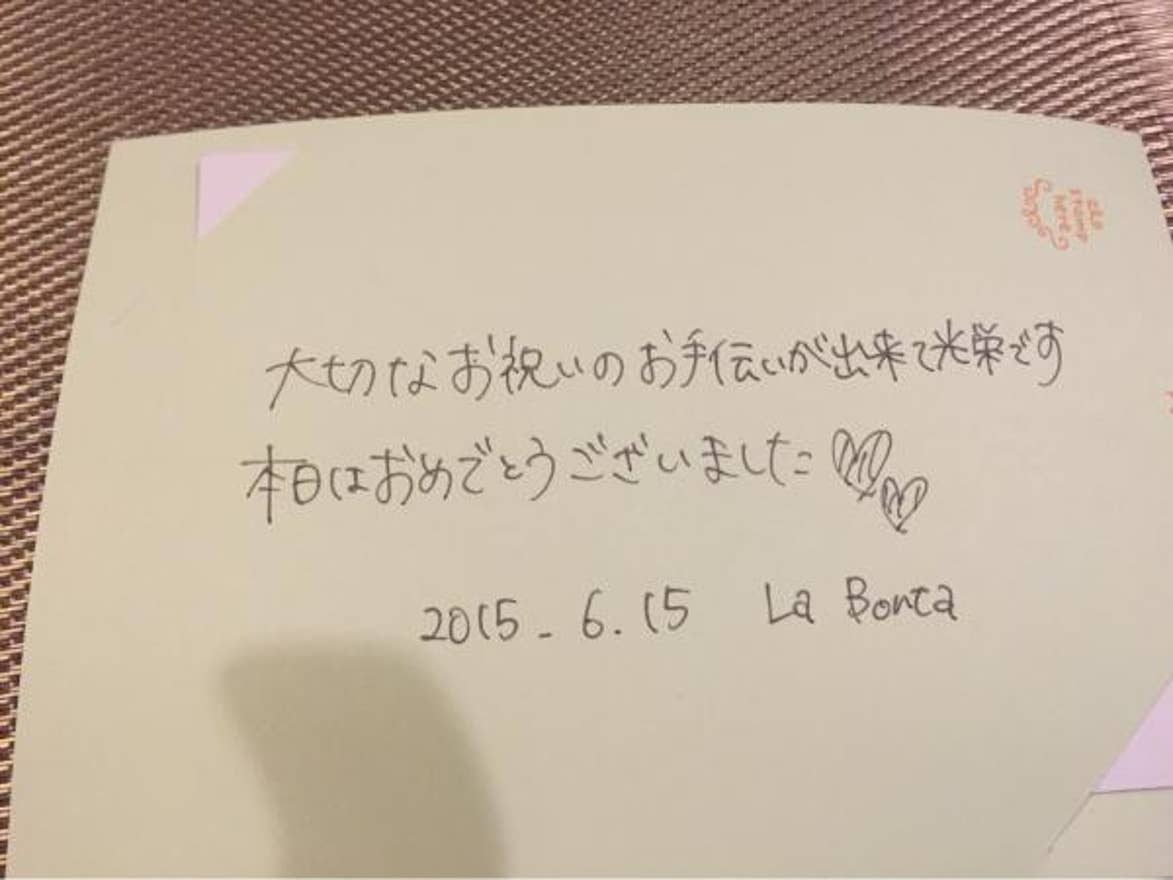 大切なお祝いのお手伝いが出来て光栄です
本日はおめでとうございました
2015.6.15 La Bonta